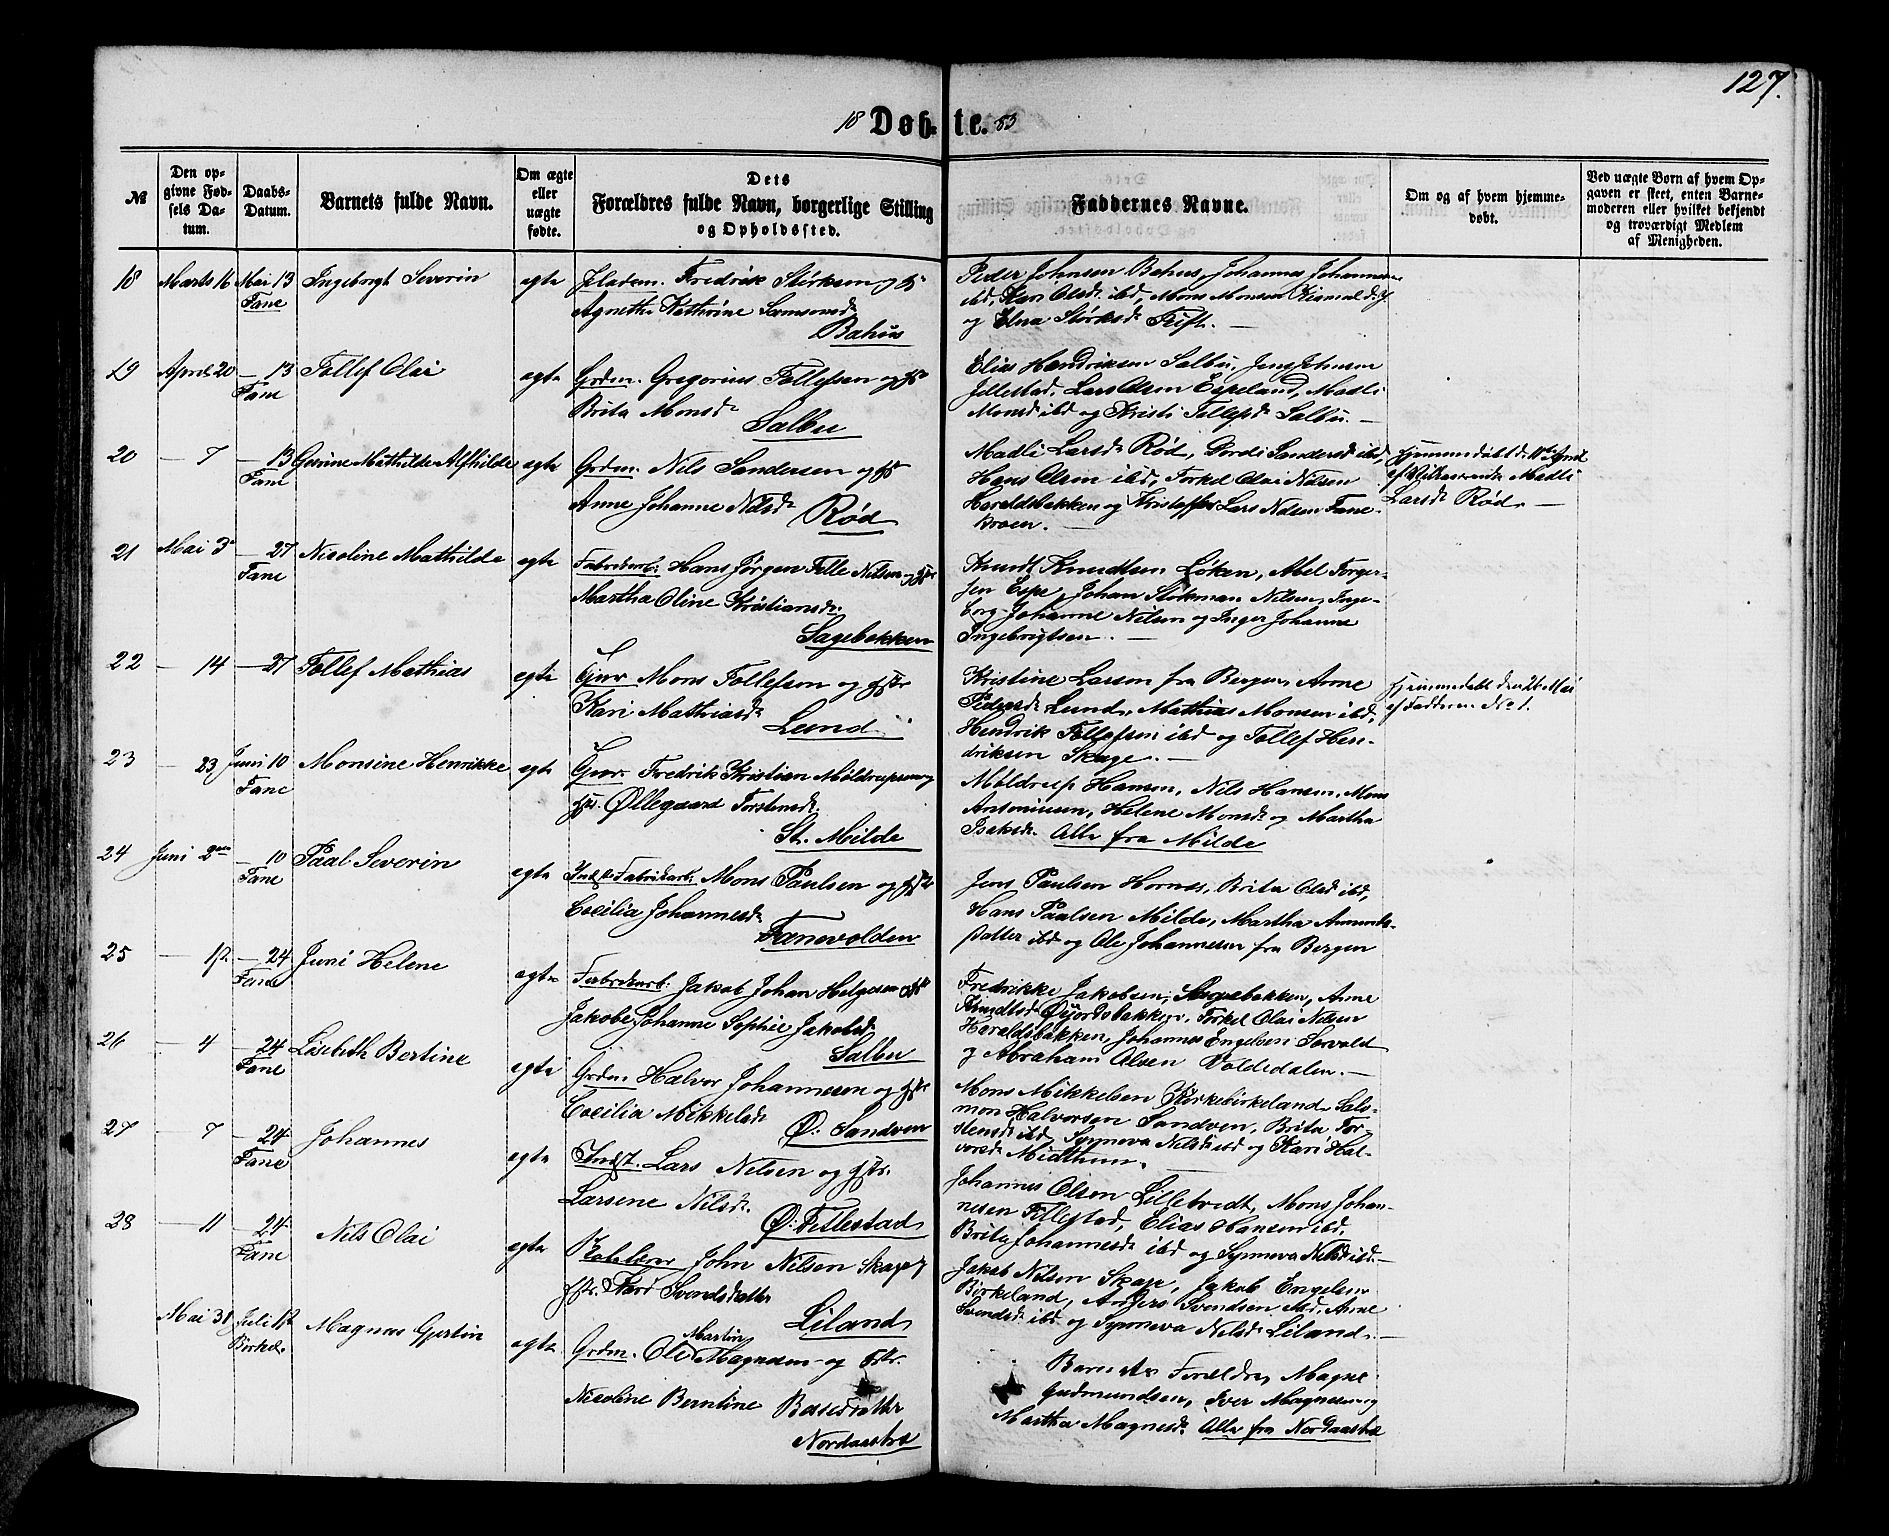 127.
18 Døb-te. 83
№
Den op-
givne Fød-
sels Da-
tum.
Daabs-
Datum.
Barnets fulde Navn.
Om ægte
eller
uægte
fødte.
Dets
Forældres fulde Navn, borgerlige Stilling
og Opholdssted.
Faddernes Navne.
Om og af hvem hjemme-
døbt.
Ved uægte Børn af hvem Op-
gaven er skeet, enten Barne-
moderen eller hvilket bekjendt
og troværdigt Medlem
af Menigheden.
18 Marts 16 Mai 13 Ingebrigt Severin egte Fredrik Størksen og
Fane
Agnethe Kathrine Samsonsd.
Bahus
Peder Johnsen Bahus, Johannes Johannesen
ibd, Kari Olsd. ibd, Mons Monsen
og Elna Størksd. Trift. —
19 April 20 — 13 Tollef Olai egte Grdm. Gregorius Tollefsen og Hstr
Fane
Brita Monsd.
Salbu
Elias Hendriksen Salbu, Jens Johnsen
Lars Olsen Espeland, Madli
Monsd ibd og Kristi Tollefsd Salbu. —
20 — 7 — 13 Gurine Mathilde Alfhilde egte Grdm. Nils Sandersen og Hstr
Fane
Anne Johanne Nilsd.
Rød
Madli Larsd. Rød, Dordi Sandersd ibd,
Hans Olsen ibd, Torkel Olai Nilsen
Haraldsbakken og Kristoffer Lars Nilsen Fane-
broen. —
Hjemmedøbt d. April
af Madli
Larsd. Rød. —
21 Mai 3 — 27 Nicoline Mathilde egte Fabrikarb: Hans Jørgen Nilsen og Hstr
Fane
Martha Oline Kristiansd.
Sagebakken
Knudt Knudtsen Løken, Abel Torger-
sen Espe, Johan Støkman Nilsen, Inge-
borg Johanne Nilsen og Inger Johanne
Ingebrigtsen. —
22 — 14 — 27 Tollef Mathias egte Gjør Mons Tollefsen og Hstr
Kari Mathiasd.
Lund
Kristine Larsen fra Bergen, Anne
Pedersd. Lund, Mathias Monsen ibd,
Hendrik Tollefsen ibd og Tollef Hen-
driksen Skage. —
Hjemmedøbt den 26 Mai
af Fadderen No 1.
23 — 23 Juni 10 Monsine Henrikke egte Fredrik Kristian Mildrupsen og
Fane
Hstr. Øllegaard Torstensd.
St. Milde
Mildrup Hansen, Nils Hansen, Mons
Antoniusen, Helene Monsd. og Martha
Isaksd. Alle fra Milde
24 Juni 2den — 10 Paal Severin egte Indst. Fabrikarb: Mons Paulsen og Hstr
Fane
Cecilia Johannesd.
Fanevolden
Jens Paulsen Hornes, Brita Olsd ibd,
Hans Paalsen Milde, Martha
datter ibd og Ole Johannesen fra Bergen
25 — 12 — 24 Juni Helene egte Fabrikarb: Jakob Johan Helgesen Hstr
Fane
Jakobe Johanne Sophie Jakobsd.
Salbu
Fredrikke Jakobsen, Sagebakken, Anne
Knudtsd. Torkel Olai Nilsen
Haraldsbakken, Johannes Engelsen Sorvald
og Abraham Olsen Voldedalen. —
26 — 4 — 24 Lisebeth Bertine egte Grdm. Halvor Johannesen og Hstr
Fane
Cecilia Mikkelsd.
Ø. Sandven
Mons Mikkelsen Kirkebirkeland, Sals-
mon Halvorsen Sandven, Brita Tor-
stensd ibd, Synneva Nilsd ibd og Kari Hal-
vorsd. Midthun.
27 — 7 — 24 Johannes egte Indst. Lars Nilsen og Hstr.
Fane
Larsene Nilsd.
Ø. Tillestad
Johannes Olsen Lillebredt, Mons Johan-
nesen Tillestad, Elias Hansen ibd,
Brita Johannesd. ibd og Synneva Nilsd ibd. —
28 — 11 — 24 Nils Olai egte John Nilsen Skage og
Fane
Hstr. Kari Svendsdatter
Liland
Jakob Nilsen Skage, Jakob Engelsen
Birkeland, Anders Svendsen ibd, Anne
Svendsd ibd og Synneva Nilsd. Liland. —
Mai 31 Juli 1st Magnus Gjertin egte Grdm. Ole Martin Magnesen og Hstr.
Birkel.
Nicoline Berntine Baardsdatter
Nordaastræ
Barnets Forældre, Magne
Gudmundsen, Iver Magnesen og
Martha Magnesd. Alle fra Nordaastræ